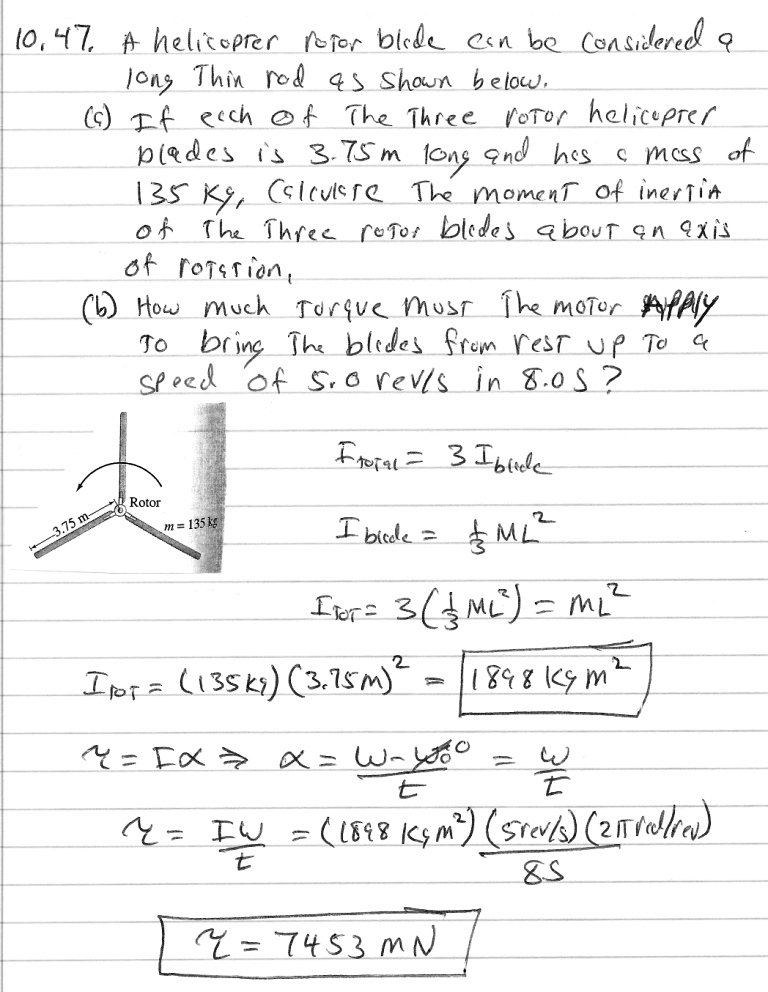 10.47. A helicopter rotor blade can be considered a
long Thin rod as shown below.
(a) If each of The Three rotor helicopter
blades is 3.75m long and has a mass of
135 Kg, Calculate The moment of inertia
of The Three rotor blades about an axis
of rotation.
(b) How much Torque must The motor Apply
To bring The blades from rest up To a
speed of 5.0 rev/s in 8.0 S?
Rotor
3.75 m
m = 135 kg
I total = 3 I blade
I blade = 1/3 ML²
I TOT = 3(1/3 ML²) = ML²
I TOT = (135Kg)(3.75m)² = 1898 Kg m²
τ = Iα ⇒ α = (ω-ω₀ 0)/t = ω/t
τ = Iω/t = (1898 Kg m²)(5rev/s)(2π rad/rev)/8S
τ = 7453 mN